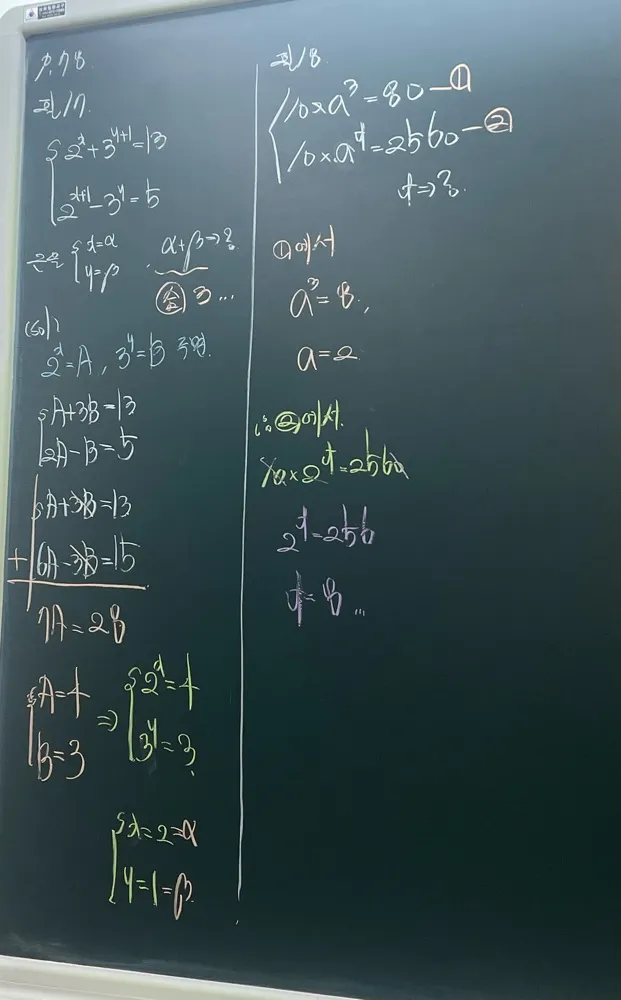 p.78
필17
2^x+3^{y+1}=13
2^{x+1}-3^y=5
근을 x=α
y=β
α+β⇒?
답 3 ...
(sol)
2^x=A, 3^y=B
A+3B=13
2A-B=5
A+3B=13
+ 6A-3B=15
7A=28
A=4
B=3
⇒ 2^x=4
3^y=3
x=2=α
y=1=β
필18
10×a^3=80-①
10×a^x=2560-②
x⇒?
①에서
a^3=8,
a=2
∴ ②에서
10×2^x=2560
2^x=256
x=8 ...